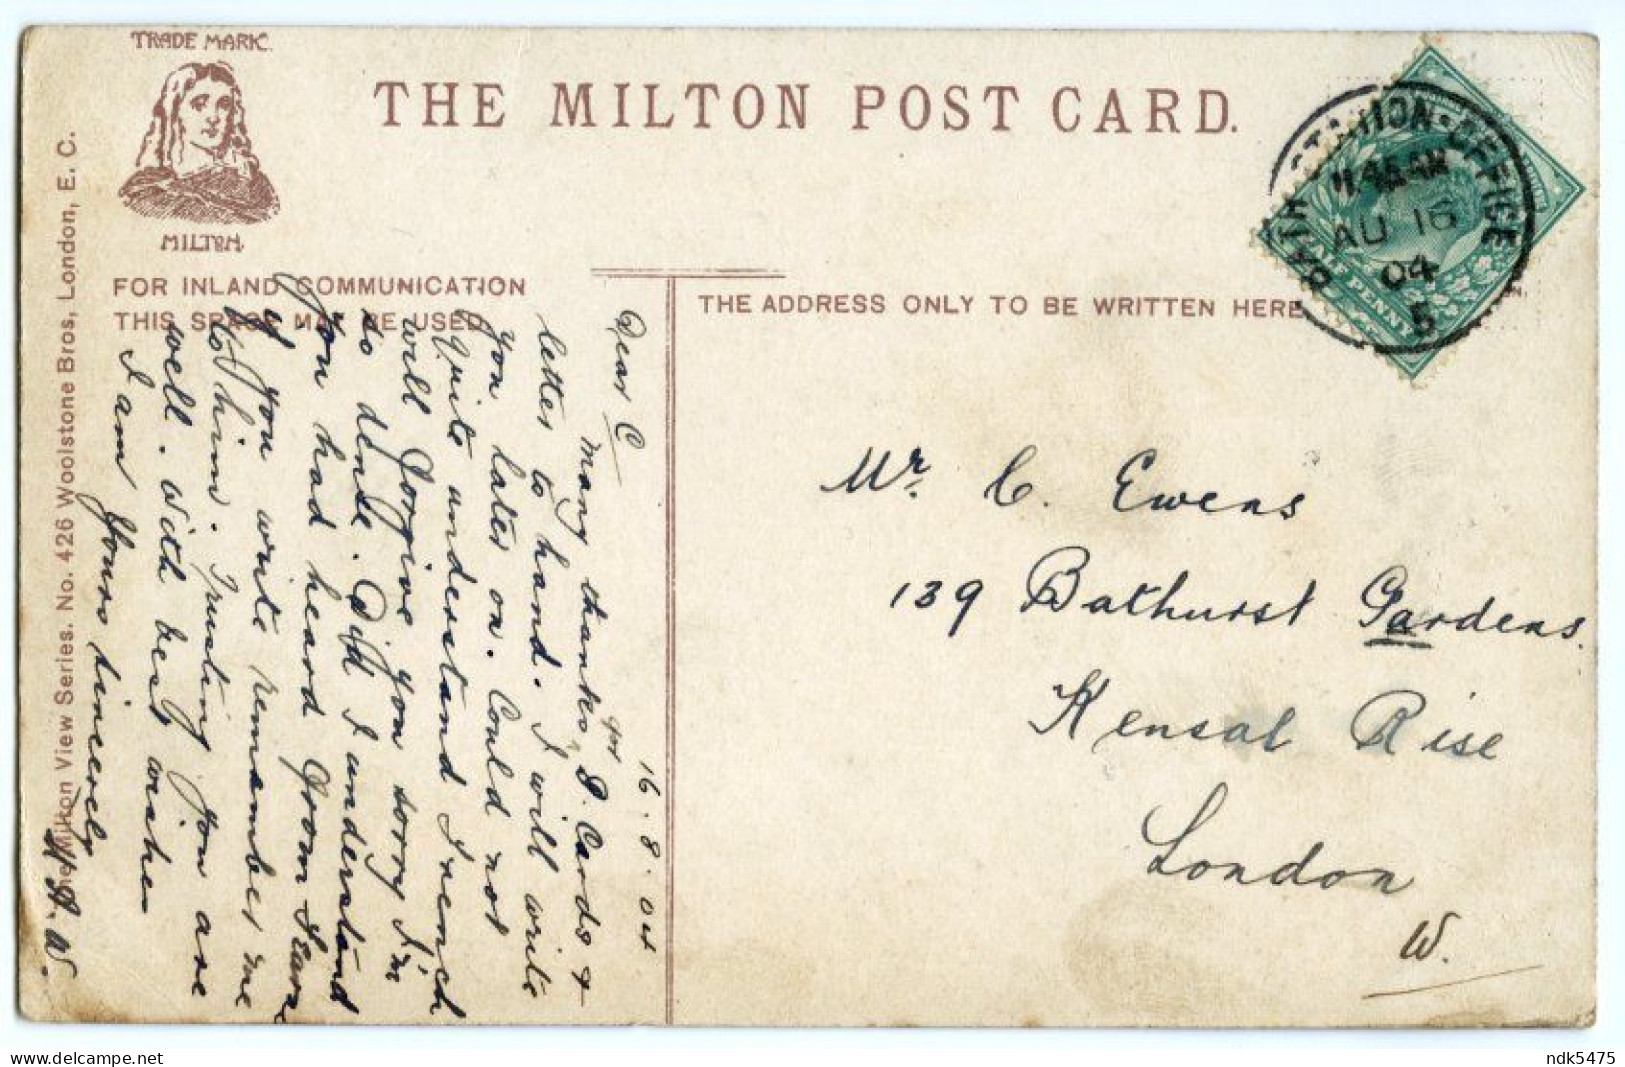 TRADE MARK.
MILTON.
THE MILTON POST CARD.
FOR INLAND COMMUNICATION
THIS SPACE MAY BE USED
THE ADDRESS ONLY TO BE WRITTEN HERE
The Milton View Series. No. 426 Woolstone Bros, London, E. C.
BATH STATION-OFFICE
11.45 AM
AU 16
04
5
HALF PENNY
Dear C 16.8.04
Many thanks for P. Cards &
letter to hand. I will write
you later on. Could not
quite understand French
will forgive you sorry I'm
so dense. Did I understand
you had heard from
if you write remember me
to him. Trusting you are
well. With best wishes
I am Yours sincerely
A. W.
Mr. C. Ewens
139 Bathurst Gardens.
Kensal Rise
London
W.
ndk5475